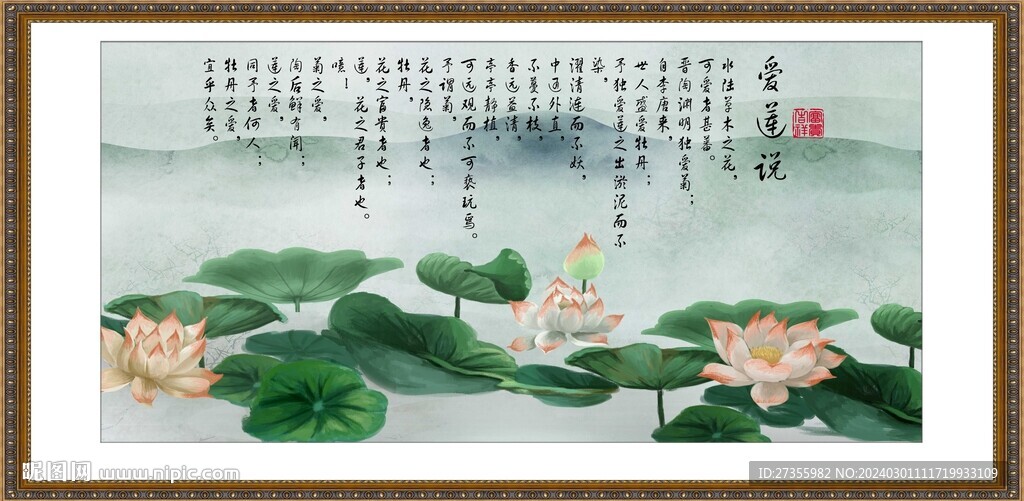 爱莲说
富贵吉祥
水陆草木之花，
可爱者甚蕃。
晋陶渊明独爱菊；
自李唐来，
世人盛爱牡丹；
予独爱莲之出淤泥而不
染，
濯清涟而不妖，
中通外直，
不蔓不枝，
香远益清，
亭亭静植，
可远观而不可亵玩焉。
予谓菊，
花之隐逸者也；
牡丹，
花之富贵者也；
莲，花之君子者也。
噫！
菊之爱，
陶后鲜有闻；
莲之爱，
同予者何人；
牡丹之爱，
宜乎众矣。
昵图网 www.nipic.com
ID:27355982 NO:20240301111719933109